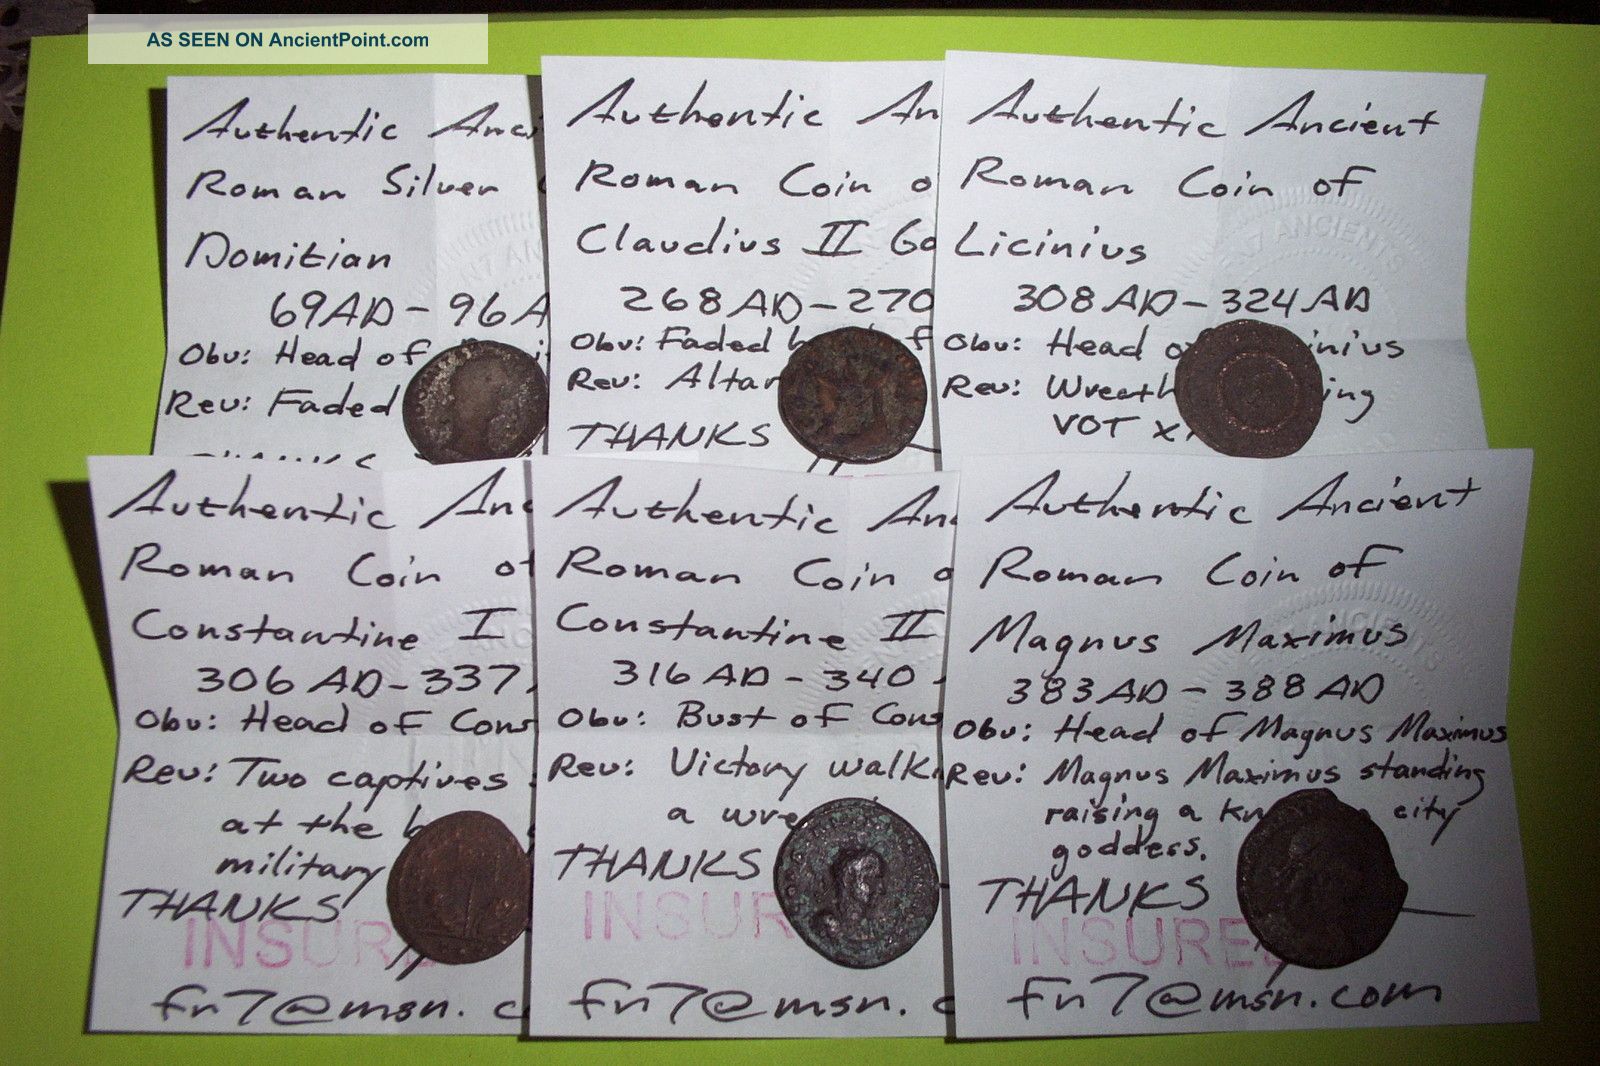 AS SEEN ON AncientPoint.com
Authentic
Roman Silver
Domitian
69AD - 96A
Obv: Head of
Rev: Faded
THANKS
Authentic An
Roman Coin o
Claudius II Go
268 AD - 270
Obv: Faded
Rev: Altar
THANKS
Authentic Ancient
Roman Coin of
Licinius
308 AD - 324 AD
Obv: Head inius
Rev: Wreath ing
VOT
Authentic An
Roman Coin of
Constantine I
306 AD - 337
Obv: Head of Cons
Rev: Two captives
at the
military
THANKS
INSURE
fn7@msn.c
Authentic An
Roman Coin o
Constantine II
316 AD - 340
Obv: Bust of Cons
Rev: Victory walki
a wre
THANKS
INSUR
fn7@msn.c
Authentic Ancient
Roman Coin of
Magnus Maximus
383 AD - 388 AD
Obv: Head of Magnus Maximus
Rev: Magnus Maximus standing
raising a kn city
goddess.
THANKS
INSURED
fn7@msn.com